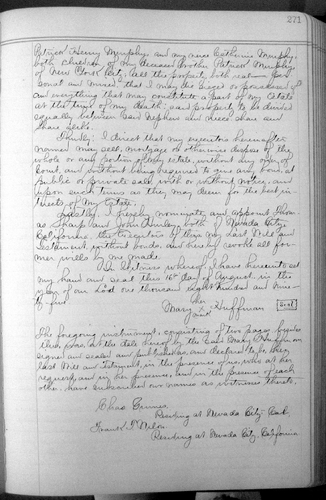 271
Patrick Henry Murphy and my niece Catherine Murphy,
both children of my deceased Brother Patrick Murphy,
of New York City, all the property both real Per
sonal and mixed, that I may die seized or possessed of
and everything that may constitute a part of my Estate
at the time of my death; said property to be divided
equally between said Nephew and Niece share and
share alike.
Thirdly; I direct that my executors hereinafter
named may sell, mortgage or otherwise dispose of the
whole or any portion of my estate, without any order of
Court, and without being required to give any bond, at
public or private sale, with or without notice, and
upon such terms as they may deem for the best in-
terests of my Estate.
Lastly; I hereby nominate and appoint Thom-
as Sharp and John Hurley both of Nevada City,
California, the executors of this my Last Will and
testament, without bonds, and hereby revoke all for-
mer wills by me made.
In Witness whereof, I have hereunto set
my hand and seal this day of August, in the
year of our Lord one thousand eight hundred and nine-
ty-four.
her
Mary Huffman Seal
mark
The foregoing instrument, consisting of two pages besides
this, was at the date hereof by the said Mary Huffman
signed and sealed and published as, and declared to be, her
last Will and Testament, in the presence of us, who at her
request, and in her presence, and in the presence of each
other, have subscribed our names as witnesses thereto.
Chas
Residing at Nevada City, Cal.
Frank T. Nilon
Residing at Nevada City, California